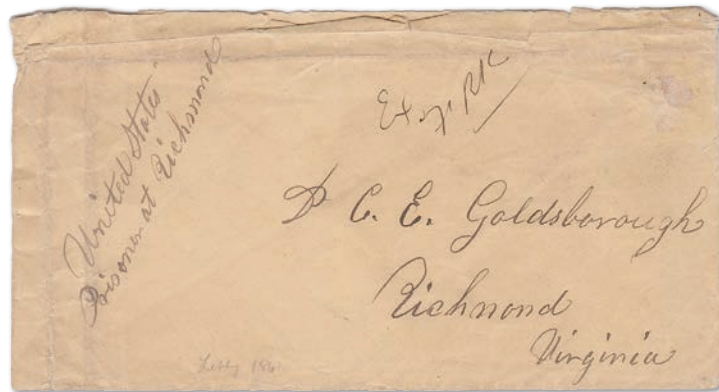 United States
Prisoner at Richmond
Ex
C. E. Goldsborough
Richmond
Virginia
Libby 186